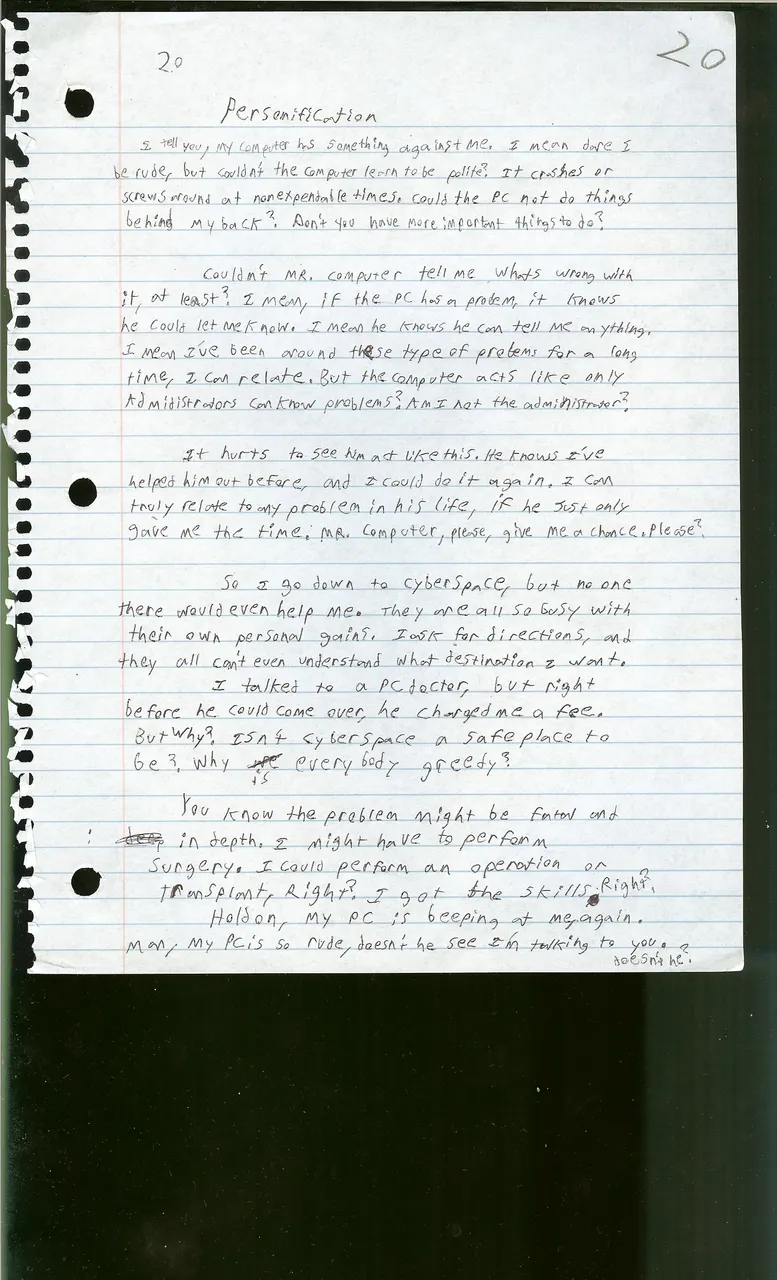 20
20
Personification
I tell you, my computer has something against me. I mean dare I
be rude, but couldn't the computer learn to be polite? It crashes or
screws around at nonexpendable times. Could the PC not do things
behind my back? Don't you have more important things to do?
Couldn't MR. computer tell me whats wrong with
it, at least? I mean, if the PC has a problem, it knows
he could let me know. I mean he knows he can tell me anything.
I mean I've been around these type of problems for a long
time, I can relate. But the computer acts like only
Admidistrators can know problems? Am I not the administrator?
It hurts to see him act like this. He knows I've
helped him out before, and I could do it again. I can
truly relate to any problem in his life, if he just only
gave me the time. MR. Computer, please, give me a chance. Please?
So I go down to cyberspace, but no one
there would even help me. They are all so busy with
their own personal gains. I ask for directions, and
they all can't even understand what destination I want.
I talked to a PC doctor, but right
before he could come over, he charged me a fee.
But why? Isn't cyberspace a safe place to
be? Why is everybody greedy?
You know the problem might be fatal and
in depth. I might have to perform
surgery. I could perform an operation or
transplant, Right? I got the skills. Right?
Hold on, my PC is beeping at me, again.
Man, my PC is so rude, doesn't he see I'm talking to you.
doesn't he?